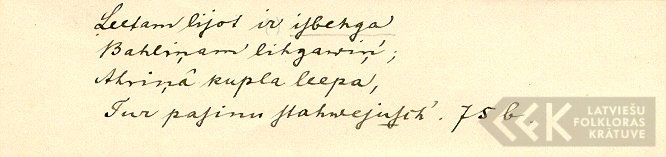 Leetam lijot ir isbehga
Bahliņam lihgawiņ';
Ahriņâ kupla leepa,
Tur pasinu stahwejusch'. 75 b.
LATVIEŠU
FOLKLORAS
KRĀTUVE